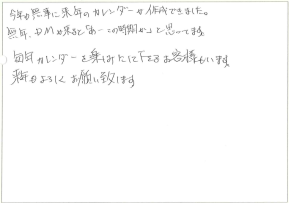 今年も無事に来年のカレンダーが作成できました。
毎年、DMが来ると「あーこの時期か」と思ってます。
毎年カレンダーを楽しみにして下さるお客様もいます。
来年もよろしくお願い致します